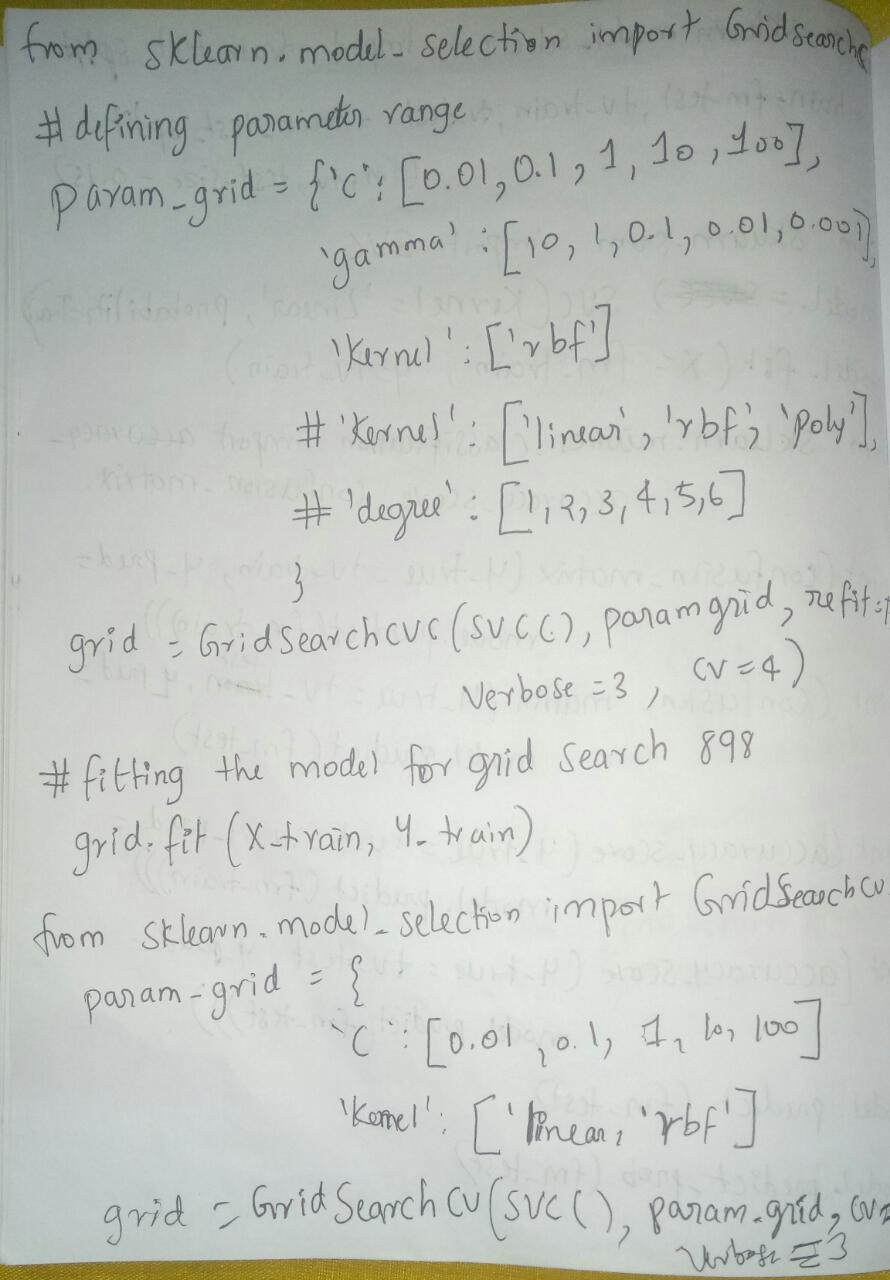 from sklearn.model_selection import GridSearchc
# defining parameter range
param_grid = {'C': [0.01, 0.1, 1, 10, 100],
'gamma': [10, 1, 0.1, 0.01, 0.001],
'Kernel': ['rbf']
# 'Kernel': ['linear', 'rbf', 'poly'],
# 'degree': [1, 2, 3, 4, 5, 6]
}
grid = GridSearchCVC(SVCC), paramgrid, refit=
Verbose = 3, CV = 4)
# fitting the model for grid search 898
grid.fit (X_train, Y_train)
from sklearn.model_selection import GridSearchCV
param-grid = {
'C': [0.01, 0.1, 1, 10, 100]
'Kernel': ['linear, 'rbf']
grid = GridSearchCV(SVC(), param_grid, CV=
Verbose = 3